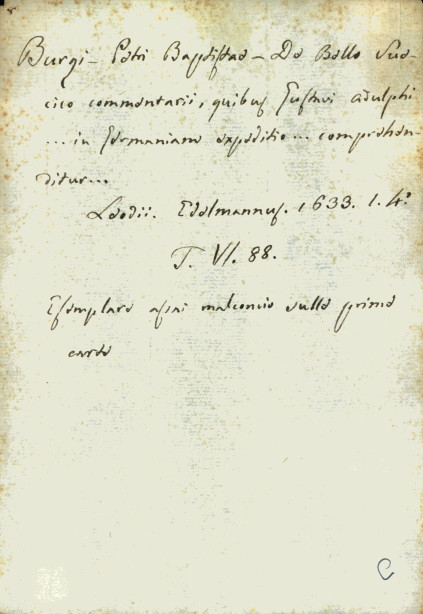 Burgi - Petri Baptistae - De Bello Sue-
cico commentarii, quibus Gustavi Adulphi
... in Germaniam expeditio ... comprehen-
ditur...
Leodii. Edelmannus. 1633. 1. 4°
T. VI. 88.
Esemplare assai malconcio nelle prime
carte
C